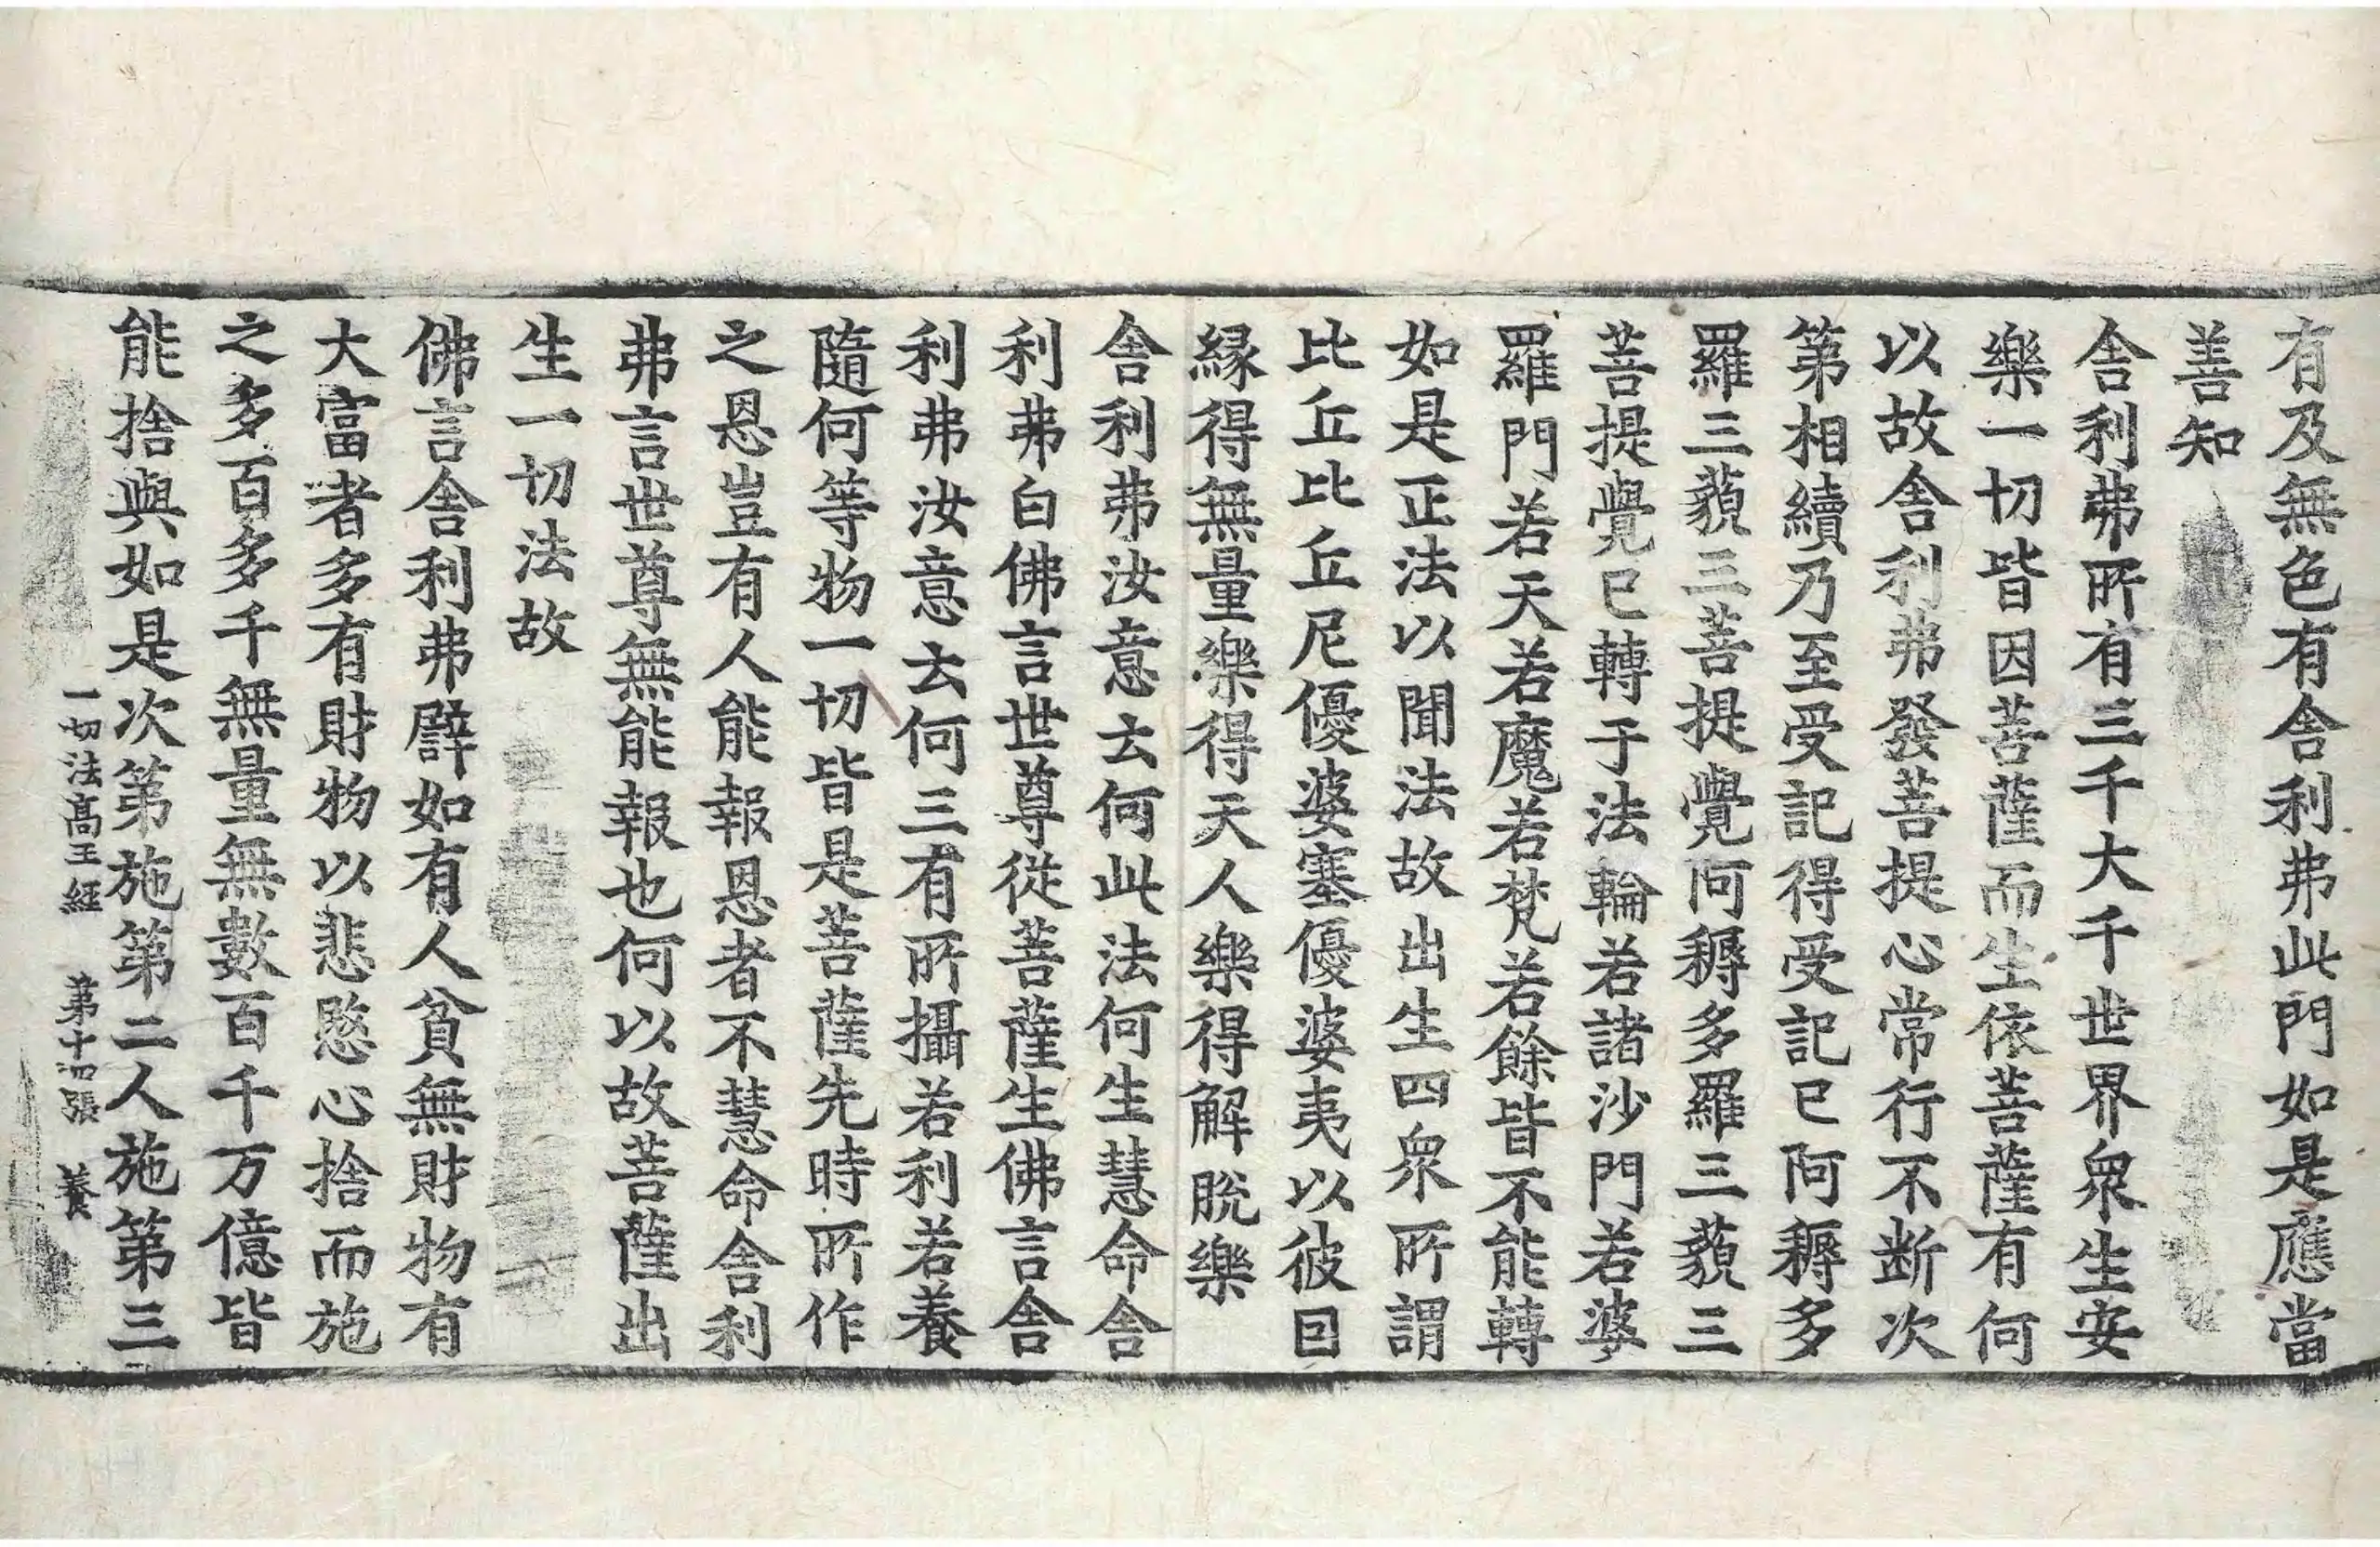 有及無色有舍利弗此門如是應當
善知
舍利弗所有三千大千世界衆生安
樂一切皆因菩薩而生依菩薩有何
以故舍利弗發菩提心常行不断次
第相續乃至受記得受記已阿耨多
羅三藐三菩提覺阿耨多羅三藐三
菩提覺已轉于法輪若諸沙門若婆
羅門若天若魔若梵若餘皆不能轉
如是正法以聞法故出生四衆所謂
比丘比丘尼優婆塞優婆夷以彼囙
緣得無量樂得天人樂得解脫樂
舍利弗汝意去何此法何生慧命舍
利弗白佛言世尊從菩薩生佛言舍
利弗汝意去何三有所攝若利若養
隨何等物一切皆是菩薩先時所作
之恩豈有人能報恩者不慧命舍利
弗言世尊無能報也何以故菩薩出
生一切法故
佛言舍利弗譬如有人貧無財物有
大富者多有財物以悲愍心捨而施
之多百多千無量無數百千万億皆
能捨與如是次第施第二人施第三
一切法高王經 第十四張 養